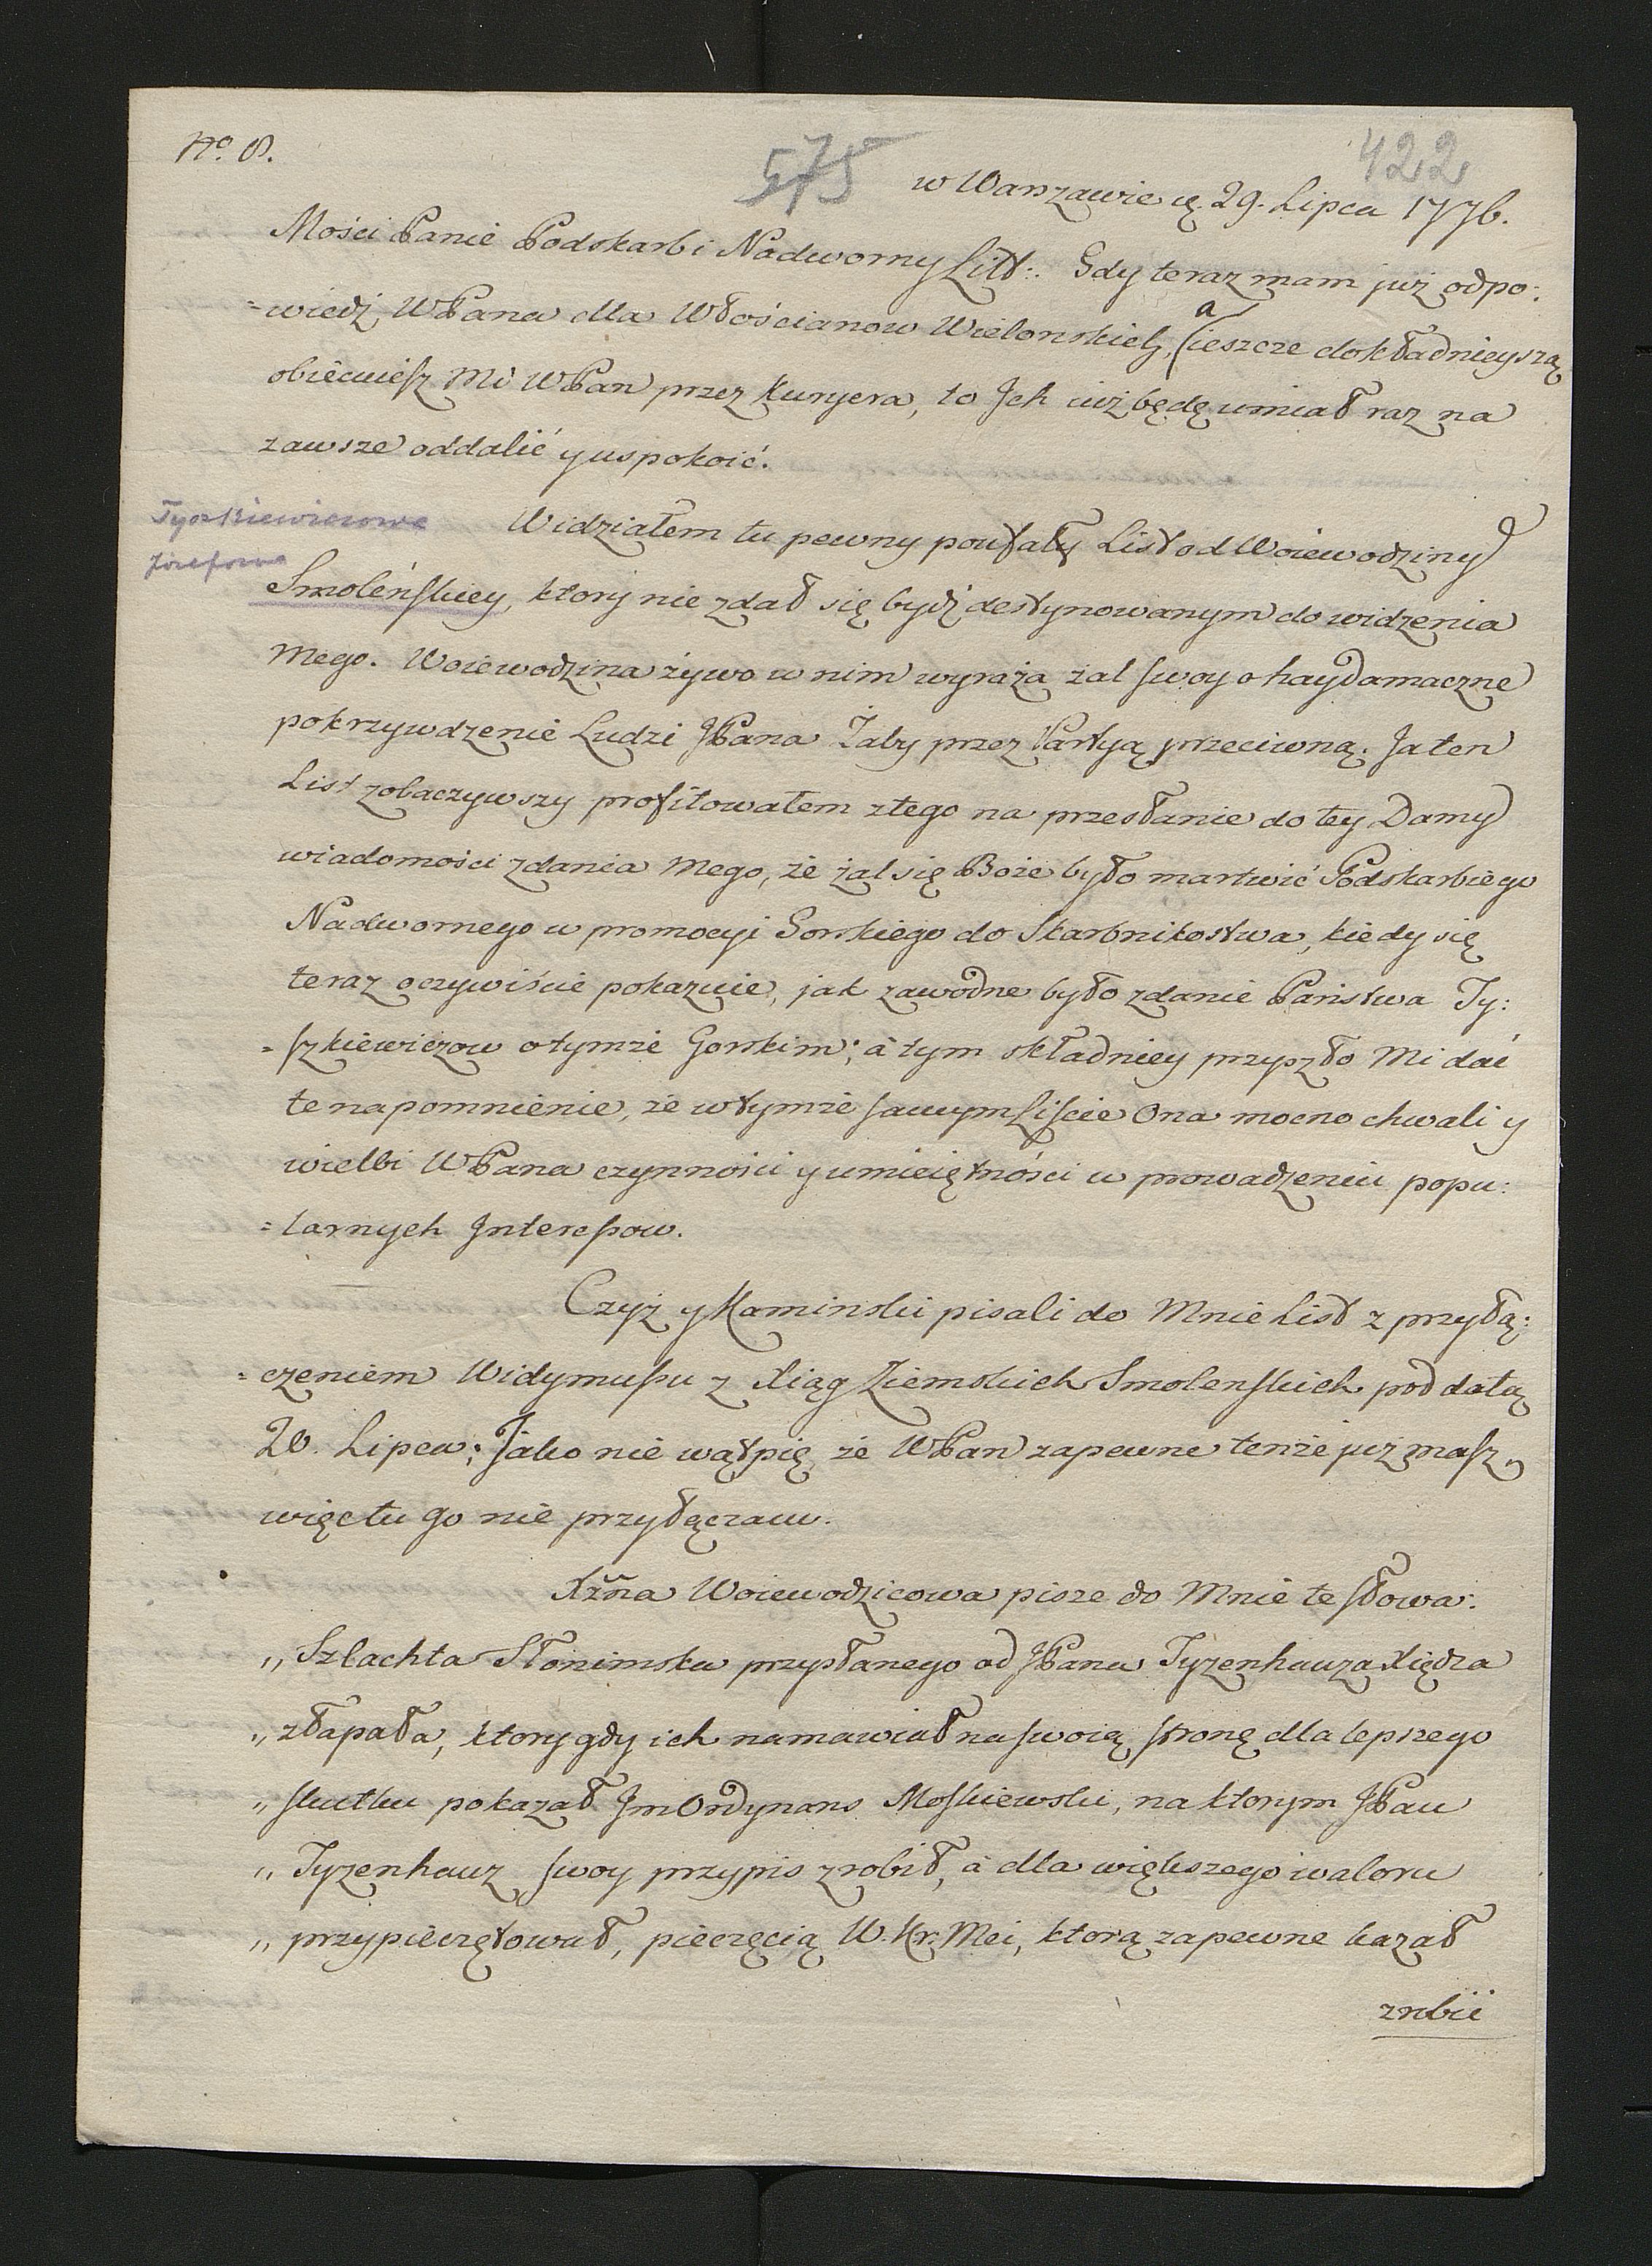 No. 8.
575
422
w Warszawie d. 29. Lipca 1776.
Mości Panie Podskarbi Nadworny Litt:. Gdy teraz mam już odpo:
=wiedź WPana dla Włościanow Wielonskich, (a ieszcze dokładnieyszą
obiecuiesz Mi WPan przez Kuryera, to Ich iuż będę umiał raz na
zawsze oddalić y uspokoić.
Tyszkiewiczowa
Józefowa
Widziałem tu pewny poufały List od Woiewodziny
Smoleńskiey, ktory nie zdał się bydź destynowanym do widzenia
Mego. Woiewodzina żywo w nim wyraża żal swoy o haydamaczne
pokrzywdzenie Ludzi JPana Żaby przez Partyą przeciwną. Ja ten
List zobaczywszy profitowałem z tego na przesłanie do tey Damy
wiadomości zdania Mego, że żal się Boże było martwić Podskarbiego
Nadwornego w promocyi Gorskiego do Skarbnikostwa, kiedy się
teraz oczywiście pokazuie, jak zawodne było zdanie Państwa Ty:
=szkiewiczow o tymże Gorskim; a tym składniey przyszło Mi dać
te napomnienie, że w tymże samym Liście Ona mocno chwali y
wielbi WPana czynności y umieiętności w prowadzeniu popu:
=larnych Interessow.
Czyż y Kaminski pisali do Mnie List z przyłą:
=czeniem Widymussu z Xiąg Ziemskich Smolenskich pod datą
20. Lipca; Jako nie wątpię, że WPan zapewne tenże już masz,
więc tu go nie przyłączam.
Xżna Woiewodzicowa pisze do Mnie te słowa:
„ Szlachta Słonimska przysłanego od JPana Tyzenhauza Xiędza
„ złapała, ktory gdy ich namawiał na swoią stronę dla lepszego
„ skutku pokazał Im Ordynans Moskiewski, na ktorym JPan
„ Tyzenhauz swoy przypis zrobił, a dla większego waloru
„ przypieczętował, pieczęcią W. Kr: Mci, ktorą zapewne kazał
zrobić